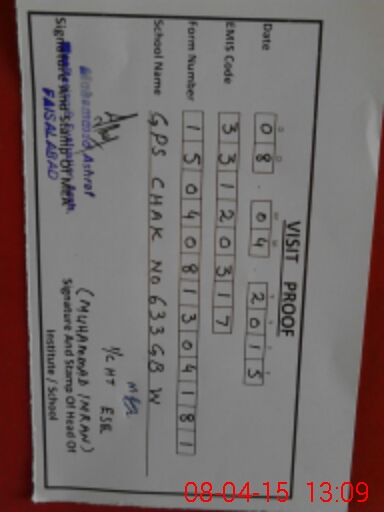 VISIT PROOF
Date 08.04.2015
EMIS Code 33120317
Form Number 1504081304181
School Name GPS CHAK NO 633 GB W
I/C HT ESE
Muhammad Ashraf
(MUHAMMAD IMRAN)
Signature And Stamp Of MEA
FAISALABAD
Signature And Stamp Of Head Of
Institute / School
08-04-15 13:09